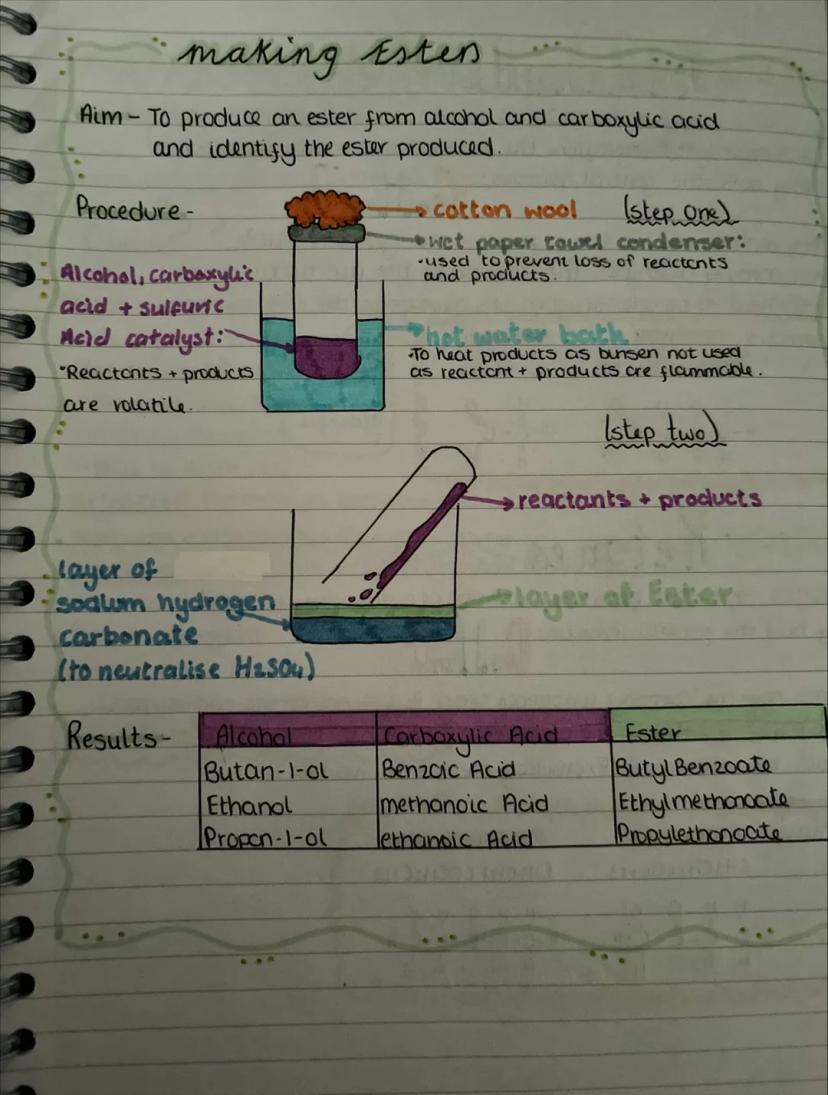 making Esters
Aim - To produce an ester from alcohol and carboxylic acid
and identify the ester produced.
Procedure -
cotton wool
(step one)
wet paper towel condenser:
•used to prevent loss of reactants
and products.
Alcohol, carboxylic
acid + sulfuric
Acid catalyst:
•Reactants + products
are volatile.
hot water bath
•To heat products as bunsen not used
as reactant + products are flammable.
(step two)
reactants + products
layer of
sodium hydrogen
carbonate
(to neutralise H2SO4)
layer of Ester
Results-
Alcohol Carboxylic Acid Ester
Butan-1-ol Benzoic Acid Butyl Benzoate
Ethanol methanoic Acid Ethylmethanoate
Propan-1-ol ethanoic Acid Propylethanoate